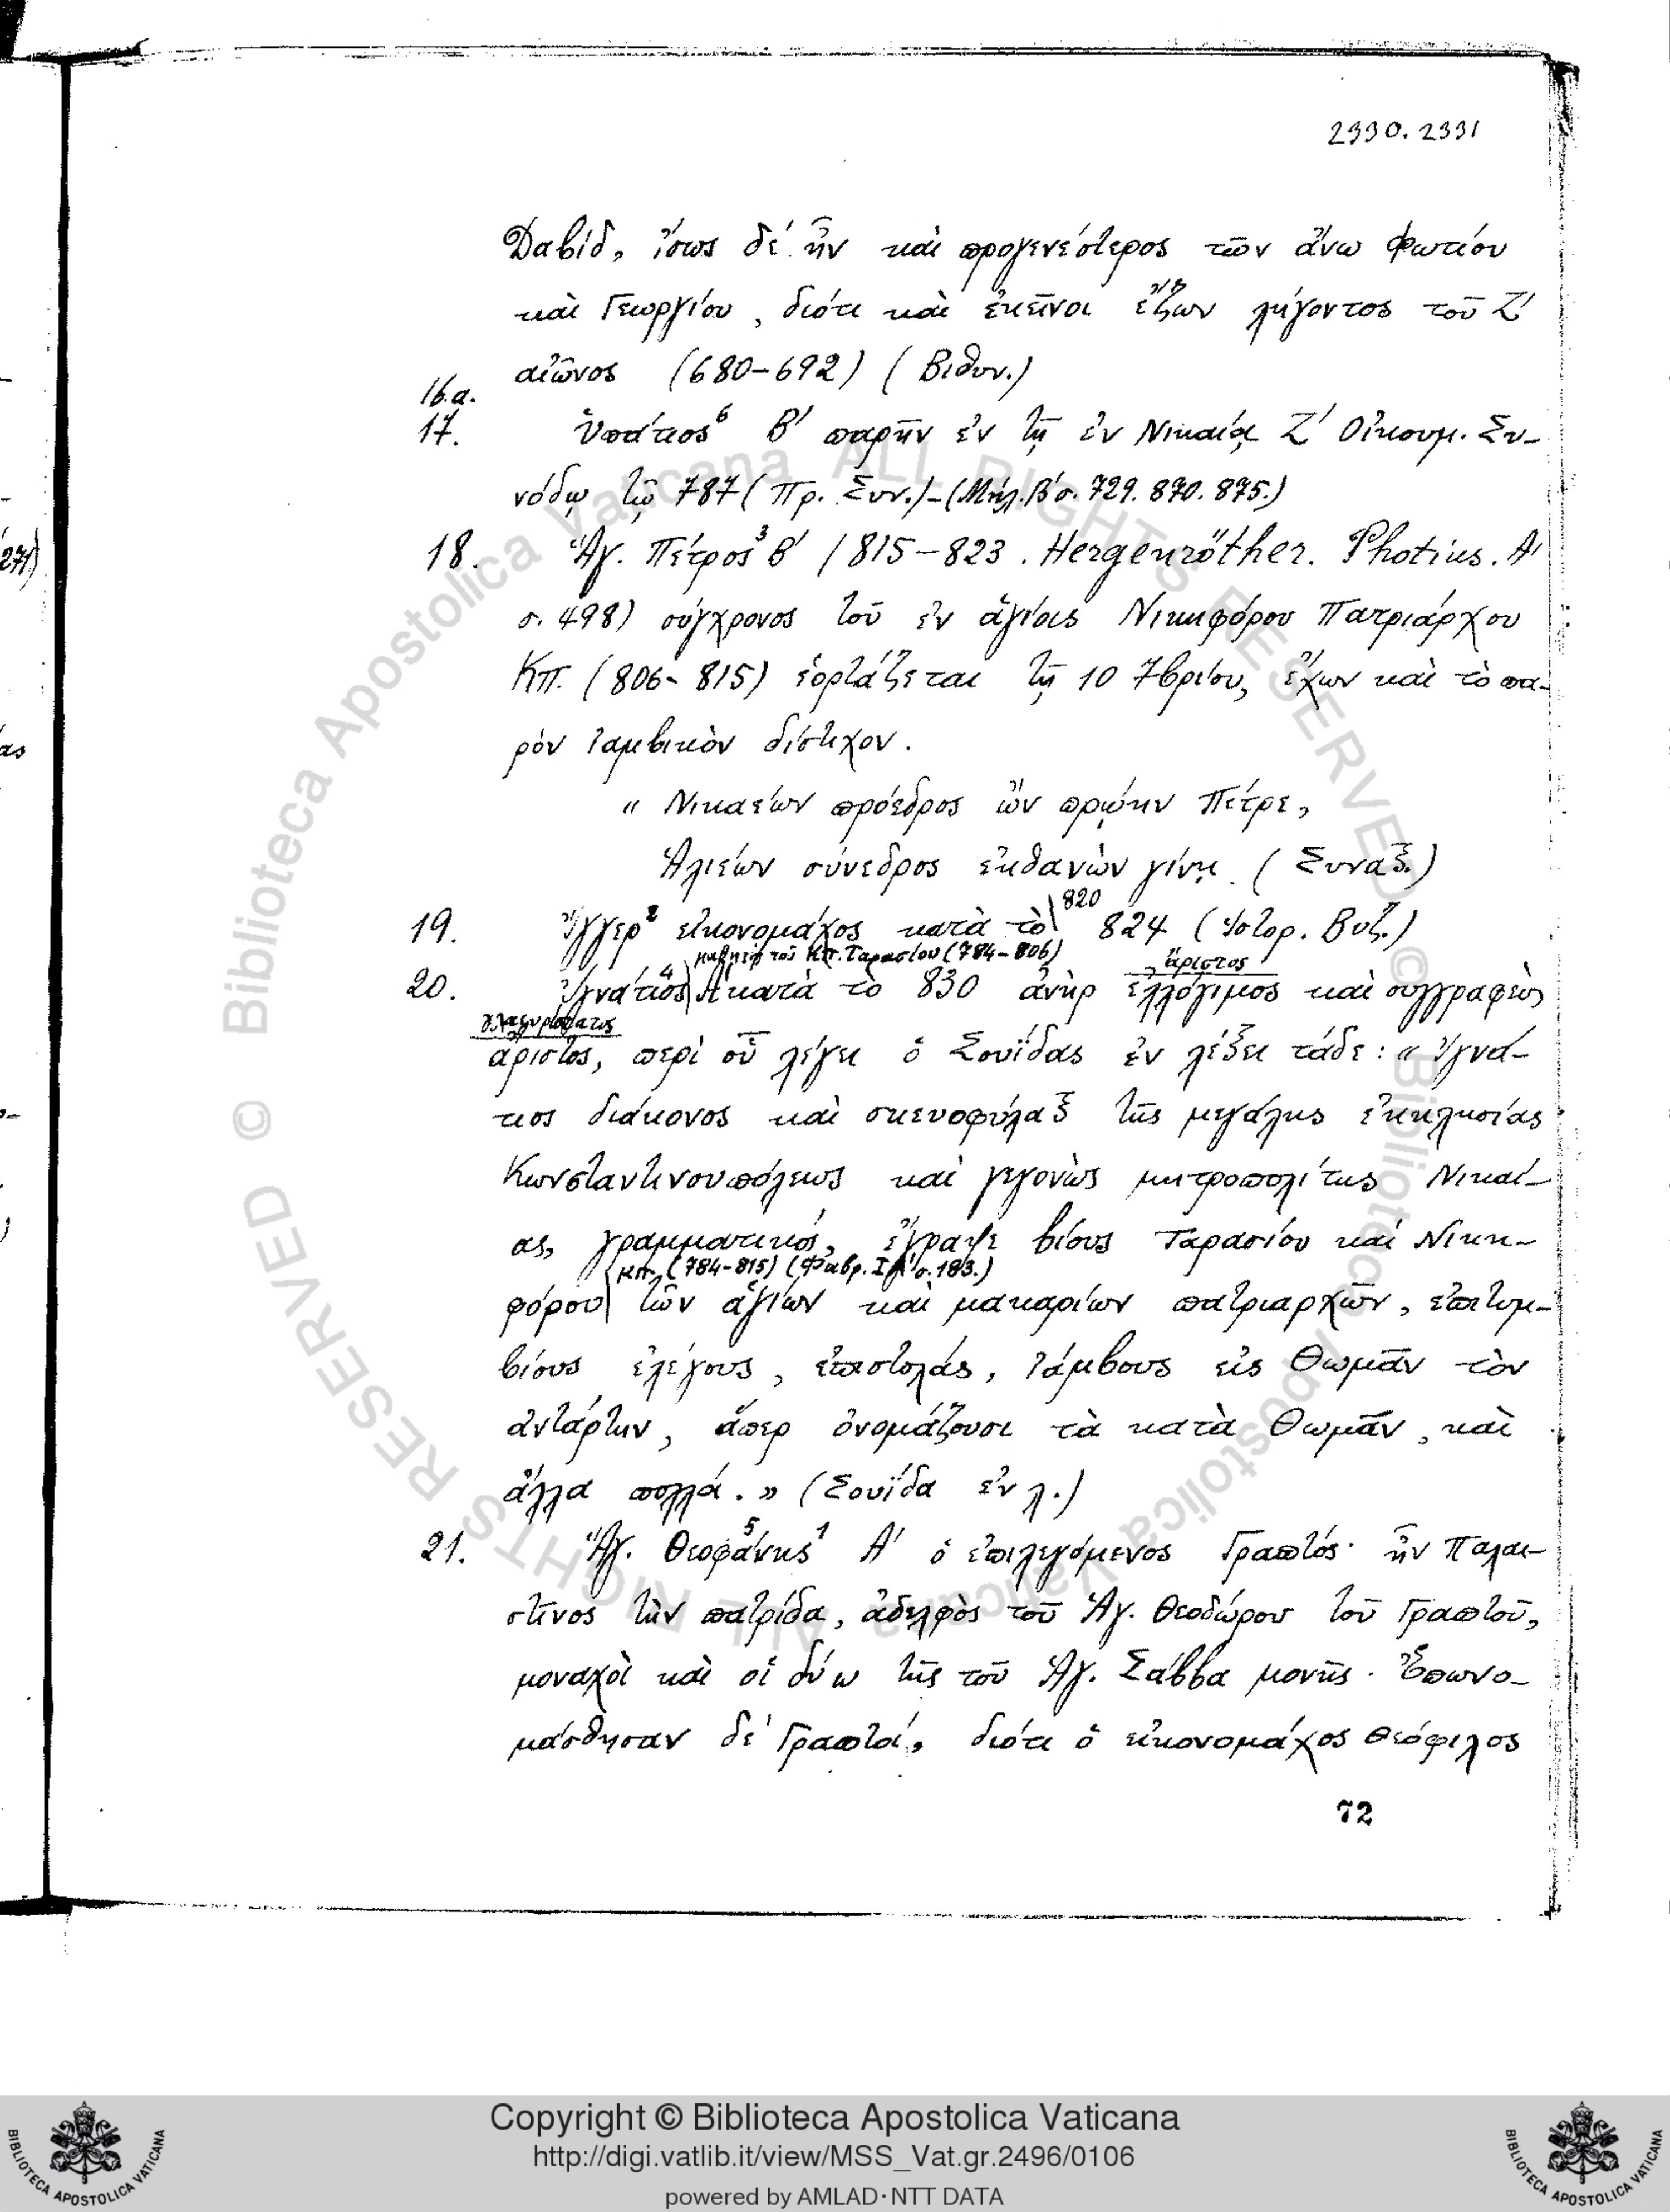 2330. 2331
Δαβίδ, ἴσως δέ ἦν καὶ προγενέστερος τῶν ἄνω Φωτίου
καὶ Γεωργίου, διότι καὶ ἐκεῖνοι ἔζων λήγοντος τοῦ Ζ'
αἰῶνος (680-692) (Βιθυν.)
16.α.
17. Ὑπάτιος⁶ Β' παρῆν ἐν τῇ ἐν Νικαίᾳ Ζ' Οἰκουμ. Συ-
νόδῳ τῷ 787 (Πρ. Συν.)-(Μήλ. Β' σ. 729. 870. 875.)
18. Ἅγ. Πέτρος³ Β' (815-823. Hergenröther. Photius. Α'
σ. 498) σύγχρονος τοῦ ἐν ἁγίοις Νικηφόρου Πατριάρχου
Κπ. (806-815) ἑορτάζεται τῇ 10 7βρίου, ἔχων καὶ τὸ πα-
ρὸν ἰαμβικὸν δίστιχον.
« Νικαέων πρόεδρος ὢν πρῴην Πέτρε,
Ἁλιέων σύνεδρος ἐκθανὼν γίνῃ. (Συναξ.)
820
19. Ἴγγερ² εἰκονομάχος κατὰ τὸ 824 (Ἱστορ. Βυζ.)
μαθητὴς τοῦ Κπ. Ταρασίου (784-806) ἄριστος
20. Ἰγνάτιος⁴ Α' κατὰ τὸ 830 ἀνὴρ ἐλλόγιμος καὶ συγγραφεὺς
γλαφυρώτατος
ἄριστος, περὶ οὗ λέγει ὁ Σουΐδας ἐν λέξει τάδε: « Ἰγνά-
τιος διάκονος καὶ σκευοφύλαξ τῆς μεγάλης ἐκκλησίας
Κωνσταντινουπόλεως καὶ γεγονὼς μητροπολίτης Νικαί-
ας, γραμματικός, ἔγραψε βίους Ταρασίου καὶ Νικη-
Κπ. (784-815) (Φαβρ. σ. 183.)
φόρου τῶν ἁγίων καὶ μακαρίων πατριαρχῶν, ἐπιτυμ-
βίους ἐλέγους, ἐπιστολάς, ἰάμβους εἰς Θωμᾶν τὸν
ἀντάρτην, ἅπερ ὀνομάζουσι τὰ κατὰ Θωμᾶν, καὶ
ἄλλα πολλά. » (Σουΐδα ἐν λ.)
21. Ἅγ. Θεοφάνης⁵ ¹ Α' ὁ ἐπιλεγόμενος Γραπτός· ἦν Παλαι-
στῖνος τὴν πατρίδα, ἀδελφὸς τοῦ Ἁγ. Θεοδώρου τοῦ Γραπτοῦ,
μοναχοὶ καὶ οἱ δύω τῆς τοῦ Ἁγ. Σάββα μονῆς. Ἐπωνο-
μάσθησαν δὲ Γραπτοί, διότι ὁ εἰκονομάχος Θεόφιλος
72
271)
ας
© Biblioteca Apostolica Vaticana ALL RIGHTS RESERVED
© Biblioteca Apostolica Vaticana ALL RIGHTS RESERVED
Copyright © Biblioteca Apostolica Vaticana
http://digi.vatlib.it/view/MSS_Vat.gr.2496/0106
powered by AMLAD·NTT DATA
BIBLIOTECA APOSTOLICA VATICANA
BIBLIOTECA APOSTOLICA VATICANA